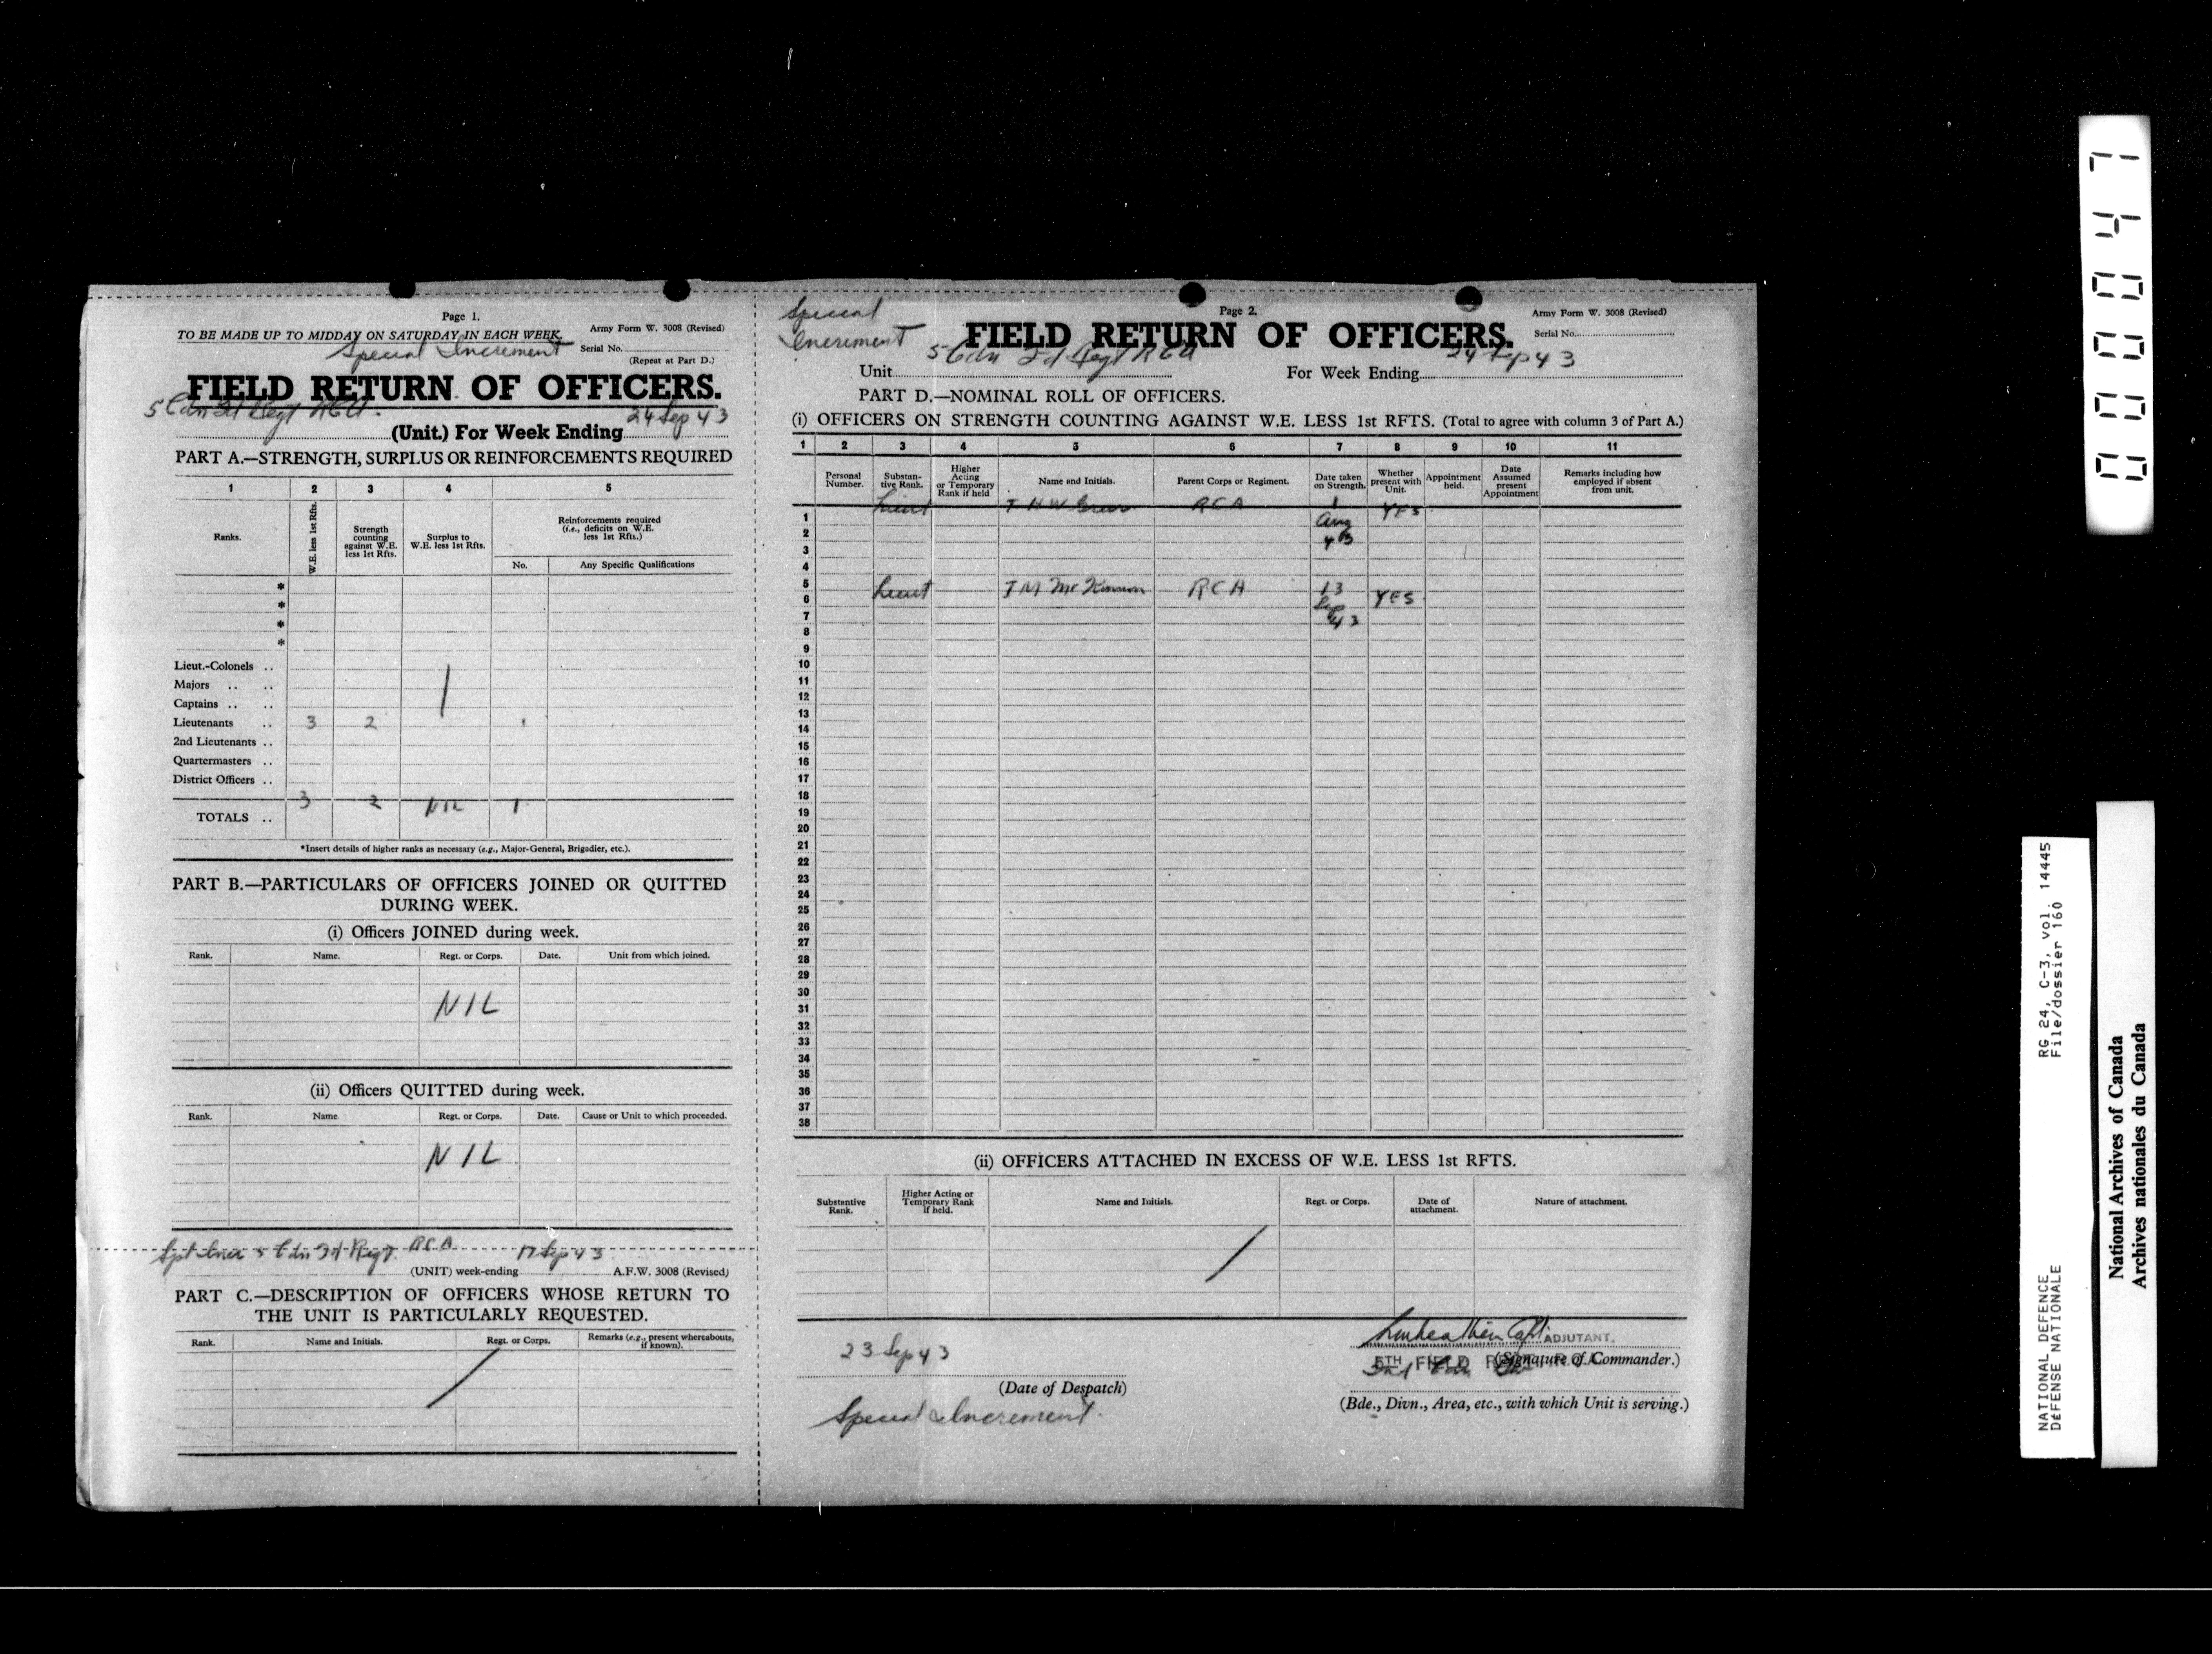 Page 1.
TO BE MADE UP TO MIDDAY ON SATURDAY IN EACH WEEK.
Army Form W. 3008 (Revised)
Special Increment
Serial No.
(Repeat at Part D.)
FIELD RETURN OF OFFICERS.
5 Cdn Fd Regt RCA.
24 Sep 43
(Unit.) For Week Ending
PART A.—STRENGTH, SURPLUS OR REINFORCEMENTS REQUIRED
1 2 3 4 5
Ranks.
W.E. less 1st Rfts.
Strength counting against W.E. less 1st Rfts.
Surplus to W.E. less 1st Rfts.
Reinforcements required (i.e., deficits on W.E. less 1st Rfts.)
No. Any Specific Qualifications
*
*
*
*
Lieut.-Colonels ..
Majors .. ..
Captains .. ..
Lieutenants .. 3 2 1
2nd Lieutenants ..
Quartermasters ..
District Officers ..
TOTALS .. 3 2 NIL 1
*Insert details of higher ranks as necessary (e.g., Major-General, Brigadier, etc.).
PART B.—PARTICULARS OF OFFICERS JOINED OR QUITTED
DURING WEEK.
(i) Officers JOINED during week.
Rank. Name. Regt. or Corps. Date. Unit from which joined.
NIL
(ii) Officers QUITTED during week.
Rank. Name Regt. or Corps. Date. Cause or Unit to which proceeded.
NIL
5 Cdn Fd Regt. RCA 17 Sep 43
(UNIT) week-ending A.F.W. 3008 (Revised)
PART C.—DESCRIPTION OF OFFICERS WHOSE RETURN TO
THE UNIT IS PARTICULARLY REQUESTED.
Rank. Name and Initials. Regt. or Corps. Remarks (e.g., present whereabouts, if known).
Special
Increment
Page 2.
Army Form W. 3008 (Revised)
FIELD RETURN OF OFFICERS.
Serial No.
5 Cdn Fd Regt RCA
24 Sep 43
Unit
For Week Ending
PART D.—NOMINAL ROLL OF OFFICERS.
(i) OFFICERS ON STRENGTH COUNTING AGAINST W.E. LESS 1st RFTS. (Total to agree with column 3 of Part A.)
1 2 3 4 5 6 7 8 9 10 11
Personal Number.
Substantive Rank.
Higher Acting or Temporary Rank if held
Name and Initials.
Parent Corps or Regiment.
Date taken on Strength.
Whether present with Unit.
Appointment held.
Date Assumed present Appointment
Remarks including how employed if absent from unit.
Lieut T H W RCA 1 Aug 43 YES
1
2
3
4
5
Lieut T M McKinnon RCA 13 Sep 43 YES
6
7
8
9
10
11
12
13
14
15
16
17
18
19
20
21
22
23
24
25
26
27
28
29
30
31
32
33
34
35
36
37
38
(ii) OFFICERS ATTACHED IN EXCESS OF W.E. LESS 1st RFTS.
Substantive Rank.
Higher Acting or Temporary Rank if held.
Name and Initials.
Regt. or Corps.
Date of attachment.
Nature of attachment.
23 Sep 43
(Date of Despatch)
Special Increment.
Capt ADJUTANT.
5TH FIELD REGT. R.C.A.
(Signature of Commander.)
(Bde., Divn., Area, etc., with which Unit is serving.)
000047
RG 24, C-3, vol. 14445
File/dossier 160
NATIONAL DEFENCE
DÉFENSE NATIONALE
National Archives of Canada
Archives nationales du Canada